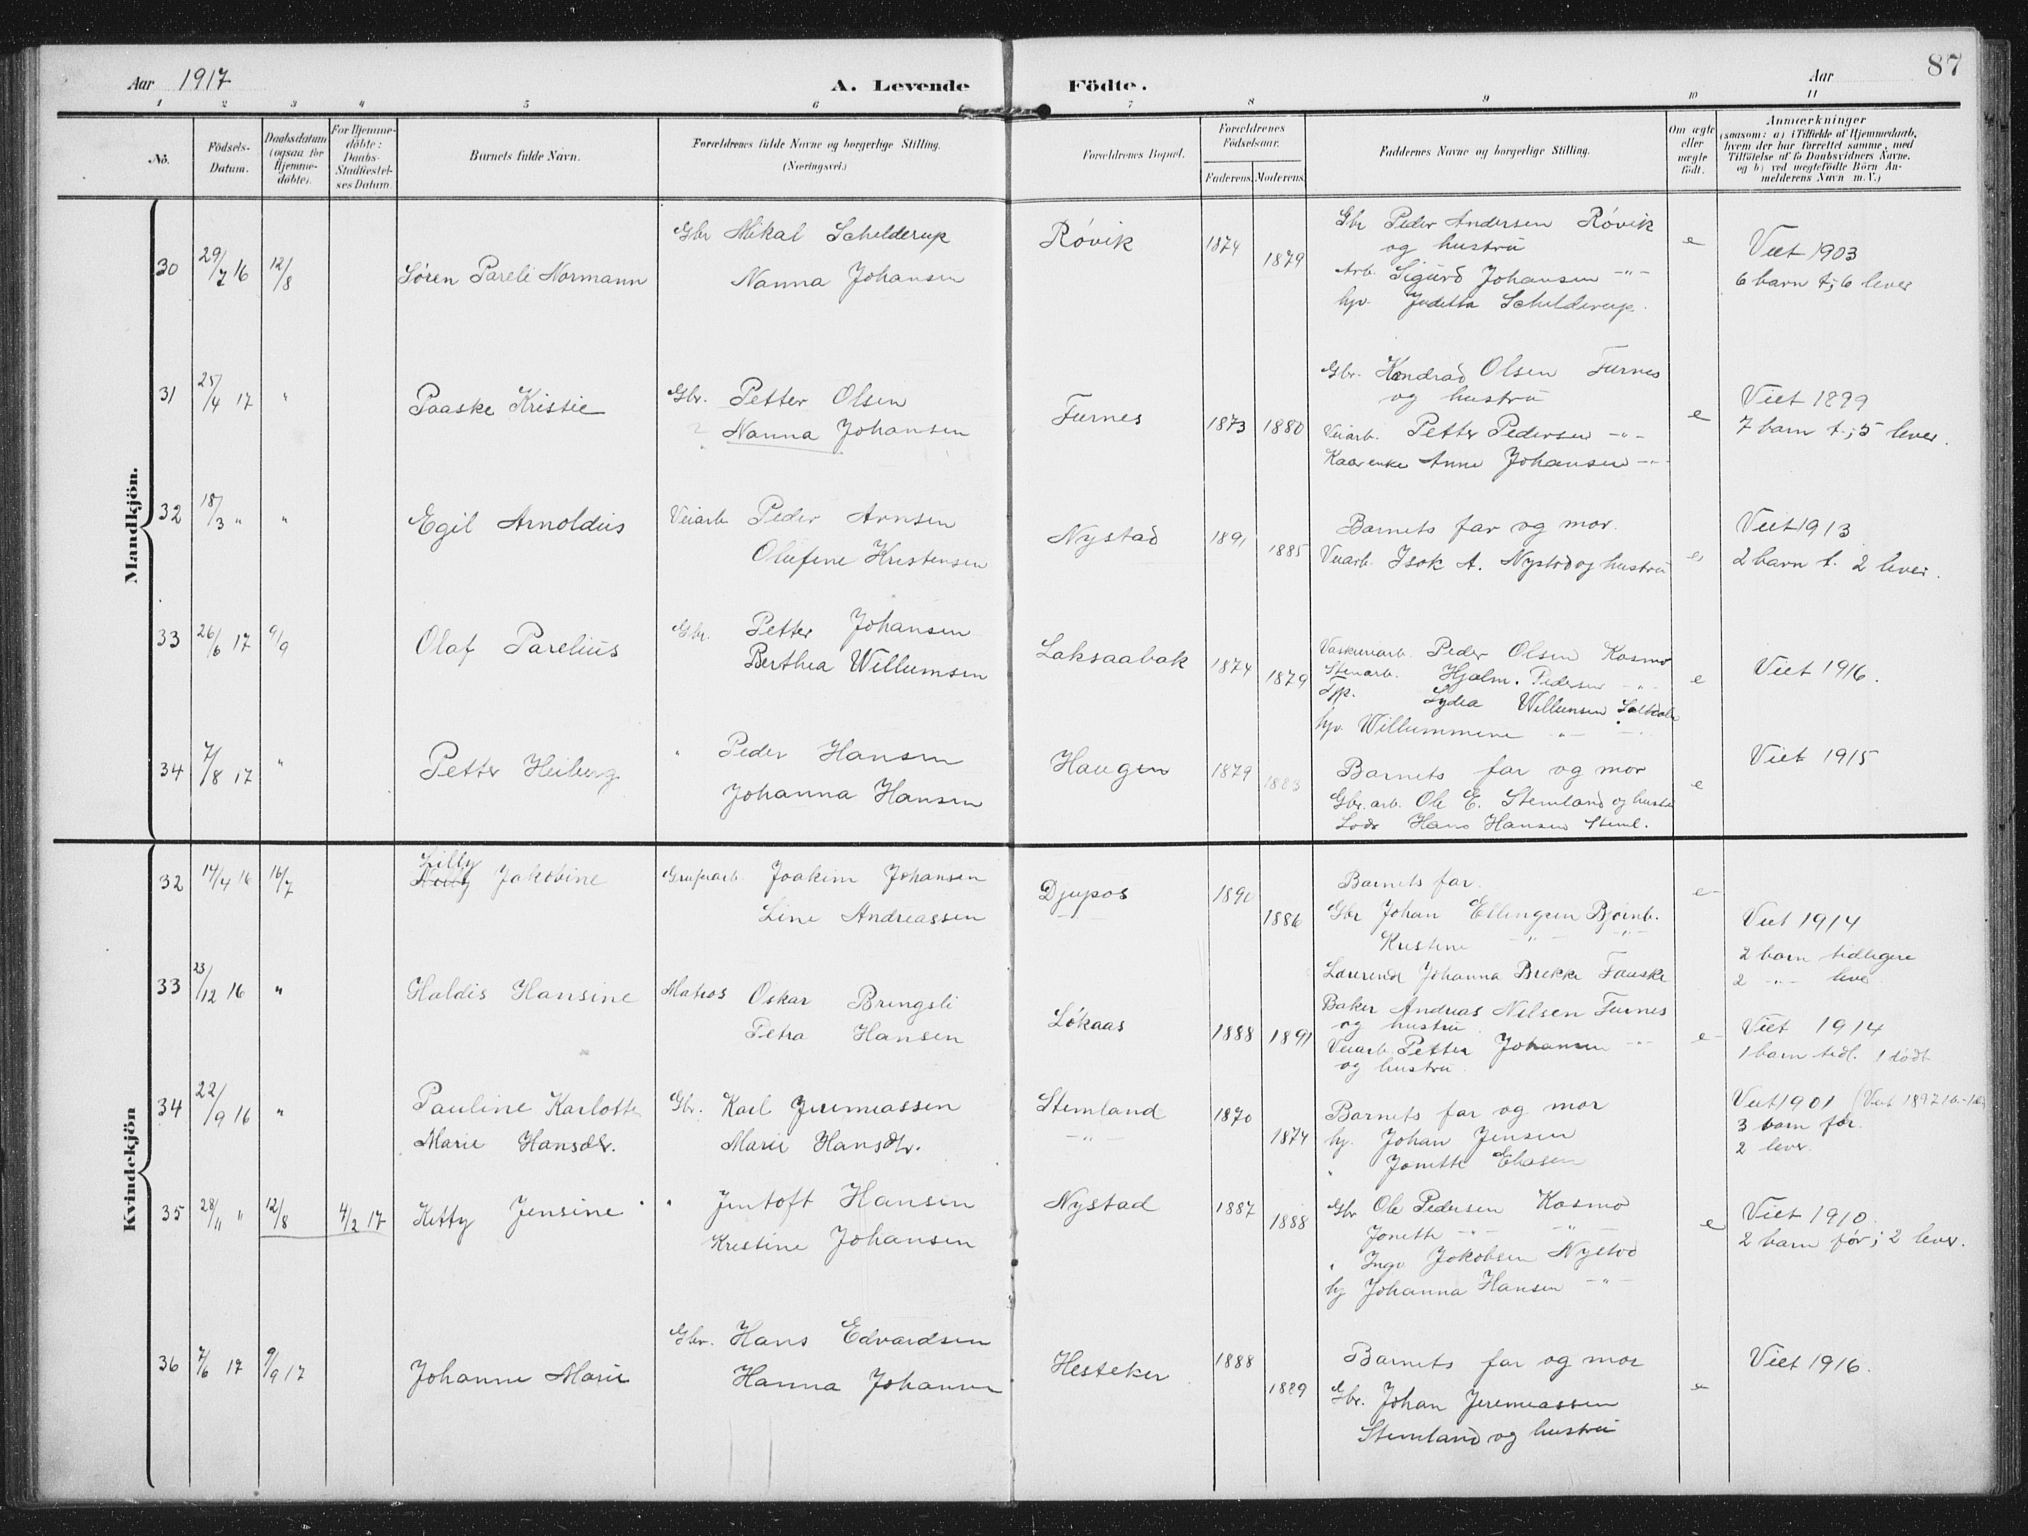 Aar 1917
A. Levende Födte.
Aar
87
1 2 3 4 5 6 7 8 9 10 11
No.
Födsels-Datum.
Daabsdatum (ogsaa for Hjemmedöbte).
For Hjemmedöbte: Daabs-Stadfæstelses Datum
Barnets fulde Navn.
Forældrenes fulde Navne og borgerlige Stilling. (Næringsvei.)
Forældrenes Bopæl.
Forældrenes Födselsaar. Faderens. Moderens.
Faddernes Navne og borgerlige Stilling.
Om ægte eller uægte födt.
Anmærkninger (saasom: a) i Tilfælde af Hjemmedaab, hvem der har forrettet samme, med Tilföielse af to Daabsvidners Navne, og b) ved uægtefödte Börn Anmelderens Navn m. V.)
Mandkjön.
30 29/7 16 12/8 Søren Pareli Normann
Gbr Mikal Schelderup
Nanna Johansen
Røvik 1874 1879
Gbr Peder Andersen Røvik
og hustru
Arb. Sigurd Johansen -"-
hpv. Schelderup.
e
Viet 1903
6 barn t; 6 lever
31 25/4 17 " Paaske Kristie
Gbr. Petter Olsen
? Nanna Johansen
Furnes 1873 1880
Gbr. Konrad Olsen Furnes
og hustru
Veiarb. Petter Pedersen -"-
Kaarenke Anne Johansen -"-
e
Viet 1899
7 barn t; 5 lever.
32 18/3 " " Egil Arnoldus
Veiarb Peder Arnsen
Olufine Kristensen
Nystad 1891 1885
Barnets far og mor.
Veiarb. Isak A. Nystad og hustru
e
Viet 1913
2 barn t. 2 lever.
33 26/6 17 9/9 Olaf Parelius
Gbr. Petter Johansen
Berthea Willumsen
Laksaabak 1874 1879
Vaskeriarb. Peder Olsen Kosmo
Stenarb. Hjalm. Pedersen -"-
Tjp. Lydia Willumsen
hpv. Willummine -"-
e
Viet 1916.
34 7/8 17 " Petter Heiberg
" Peder Hansen
Johanna Hansen
Haugen 1879 1883
Barnets far og mor
Gbr. arb. Ole E. Stemland og hustru
Lods Hans Hansen Steml.
e
Viet 1915
Kvindekjön
32 14/4 16 16/7 Lilly Jakobine
Grubarb. Joakim Johansen
Line Andreassen
Djupos 1890 1886
Barnets far.
Gbr Johan Ellingsen Bjørnb.
Kristine -"- -"-
Lærerinde Johanna Brekke Fauske
e
Viet 1914
2 barn tidligere
2 -"- leve
33 23/12 16 " Haldis Hansine
Matros Oskar Bringsli
Petra Hansen
Løkaas 1888 1891
Baker Andreas Nilsen Furnes
og hustru
Veiarb. Petter Johansen -"-
og hustru.
e
Viet 1914
1 barn tidl. 1 dødt
34 22/9 16 " Pauline Karlotte
Marie Hansdtr.
Gbr. Karl Jeremiassen
Marie Hansdtr.
Stemland
-"-
1870 1874
Barnets far og mor
hj. Johan Jensen
" Jonette Eliasen
Viet 1901
3 barn før.
2 lever.
35 28/11 " 12/8 4/2 17 Ketty Jensine
" Jentoft Hansen
Kristine Johansen
Nystad 1887 1888
Gbr Ole Pedersen Kosmo
Jonette -"- -"-
" Inga Jakobsen Nystad
hj Johanna Hansen -"-
e
Viet 1910.
2 barn før; 2 lever.
36 7/6 17 9/9 17 Johanne Marie
Gbr. Hans Edvardsen
Hanna Johansen
Hesteker 1888 1889
Barnets far og mor
Gbr. Johan Jeremiassen
Stemland og hustru
e
Viet 1916.